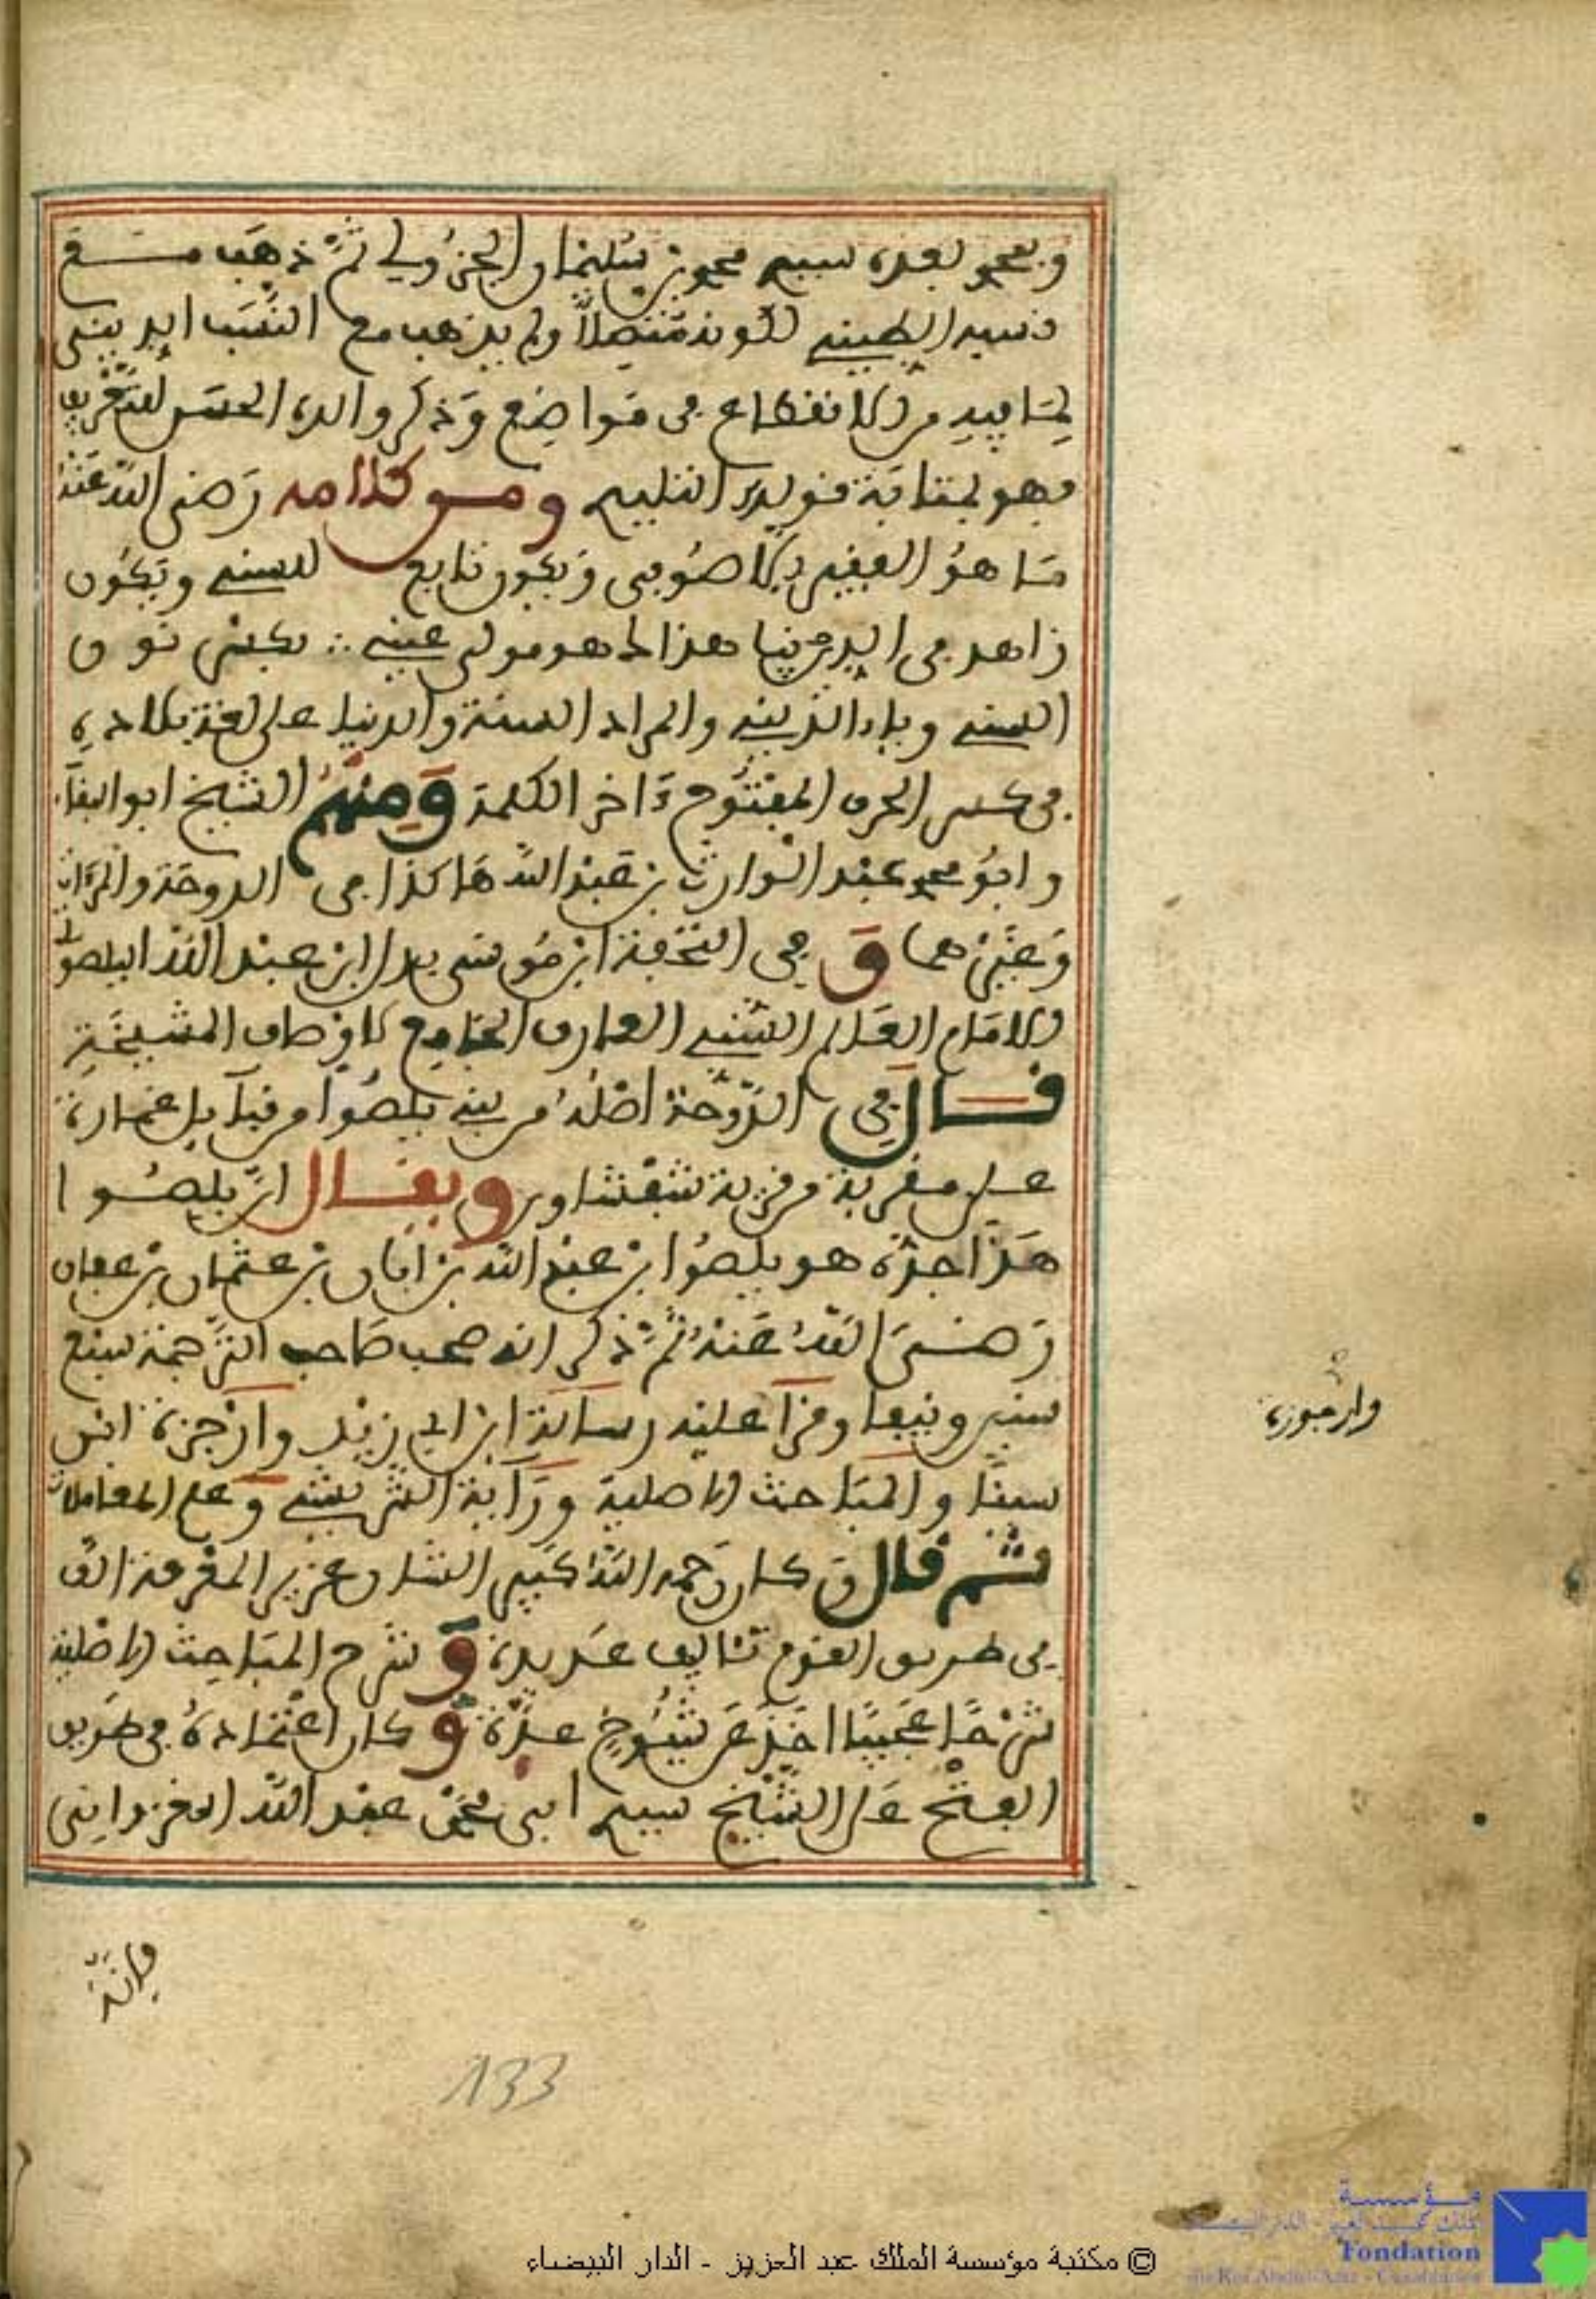 وبمحمد بعده سيدي محمد بن سليمان الجزولي ثم ذهب مع
نسبه الطيني لكونه متصلا ولم يذهب مع النسب الديني
لما فيه من الانقطاع في مواضع وذكر والده الحسن للتعريف
فهو بمثابة قوله التلييي ومن كلامه رضي الله عنه
ما هو الفقير الا صوفي ويكون تابع السني ويكون
زاهد في الدنيا هذا لا هو مولى عيني ∴ بكسر نون
السني وياء الديني والمراد السنة والدنيا على لغة بلاده
في كسر الحرف المفتوح ءاخر الكلمة ومنهم الشيخ ابو البقاء
وابو محمد عبد الوارث بن عبد الله هاكذا في الدوحة والمرءات
وغيرهما وفي التحفة ابن موسى بدل ابن عبد الله اليلصوتي
الامام العالم السني العارف الجامع لاوصاف المشيخة
قال في الدوحة اصله من بني يلصوا من قبايل غمارة
على مقربة من قرية شفشاون ويقال ان يلصوا
هذا جده هو يلصوا بن عبد الله بن ابان بن عثمان بن عفان
رضي الله عنه ثم ذكر انه صحب صاحب الترجمة سبع
سنين ونيفا وقرأ عليه رسالة ابن ابي زيد وارجزة ابن
سينا والمباحث الاصلية ورآية الشريشي وعلم المعاملات
ثم قال وكان رحمه الله كبير الشان عزيز المعرفة الف
في طريق القوم تئاليف عديدة وشرح المباحث الاصلية
شرحا عجيبا اخذ عن شيوخ عدة وكان اعتماده في طريق
الفتح على الشيخ سيدي ابي محمد عبد الله الغزواني
وارجوزة
فانه
133
© مكتبة مؤسسة الملك عبد العزيز - الدار البيضاء
مؤسسة
الملك عبد العزيز - الدار البيضاء
Fondation
du Roi Abdul-Aziz - Casablanca